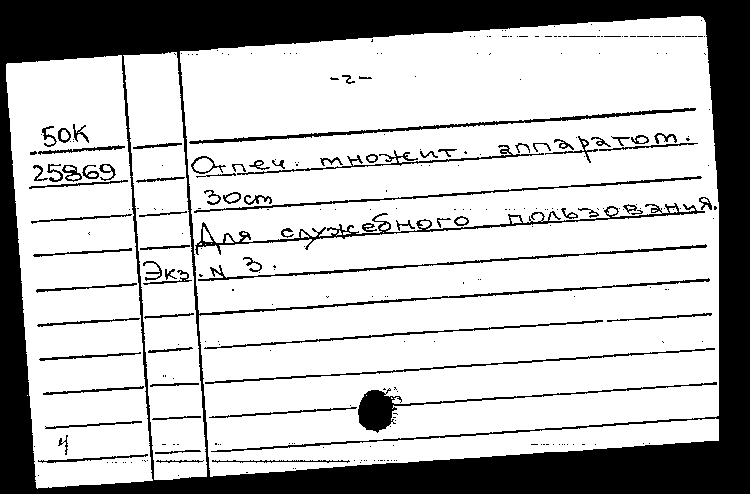 -2-
50К
25869 Отпеч. множит. аппаратом.
30 ст
Для служебного пользования.
Экз. N 3.
4